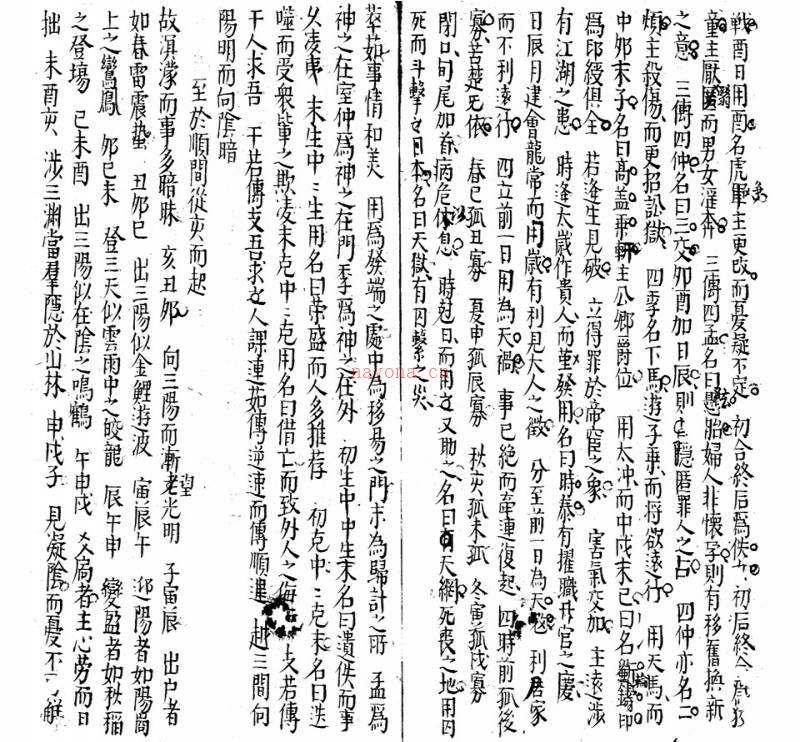 酉日用酉名虎 主更改而憂疑不定 初合終后為泆女 初后終合為狡
童主厭匿而男女淫奔 三傳四孟名曰懸胎婦人非懷孕則有移舊換新
之意 三傳四仲名曰三交卯酉加日辰則主隱匿罪人之占 四仲亦名二
煩主殺傷而更招訟獄 四季名下馬游子乘而將欲遠行 用天馬而
中卯末子名曰高盖乘軒主公卿爵位 用太冲而中戌末巳曰名斵輪印
為印綬俱全 若逢生見破 立得罪於帝宦之象 害氣交加 主遠涉
有江湖之患 時逢太歲作貴人而堇發用名曰時泰有擢職升官之慶
日辰月建會龍常而用歲有利見大人之徵 分至前一日為天 利居家
而不利遠行 四立前一日用為天禍 事已絕而牽連復起 四時前孤後
寡苦楚无依 春巳孤丑寡 夏申孤辰寡 秋亥孤未孤 冬寅孤戌寡
閉口旬尾加首病危休息 時尅日而用之又助之名曰天網死喪之地用囚
死而斗擊日本名曰天獄有囚繫之災
萃茹事情和美 用為發端之處中為移易之門末為歸計之所 孟為
神之在室仲為神之在門季為神之在外 初生中中生末名曰遺泆而事
久凌夷 末生中中生用名曰榮盛而人多推荐 初克中中克末名曰迭
噬而受眾輩之欺凌末克中中克用名曰借亡而致外人之侮 支若傳
干人求吾 干若傳支吾求之人課連茹傳逆連而傳順進 越三間向
陽明而向陰暗
至於順間從亥而起
故溟濛而事多暗昧 亥丑卯 向三陽而漸望光明 子寅辰 出户者
如春雷震蟄 丑卯巳 出三陽似金鯉游波 寅辰午 迎陽者如陽岡
上之鸞鳳 卯巳未 登三天似雲雨中之蛟龍 辰午申 變盈者如秋稻
之登場 巳未酉 出三陽似在陰之鳴鶴 午申戌 爻局者主心劳而日
拙 未酉亥 涉三淵當羣隱於山林 申戌子 見凝陰而憂不解
nayona.cn